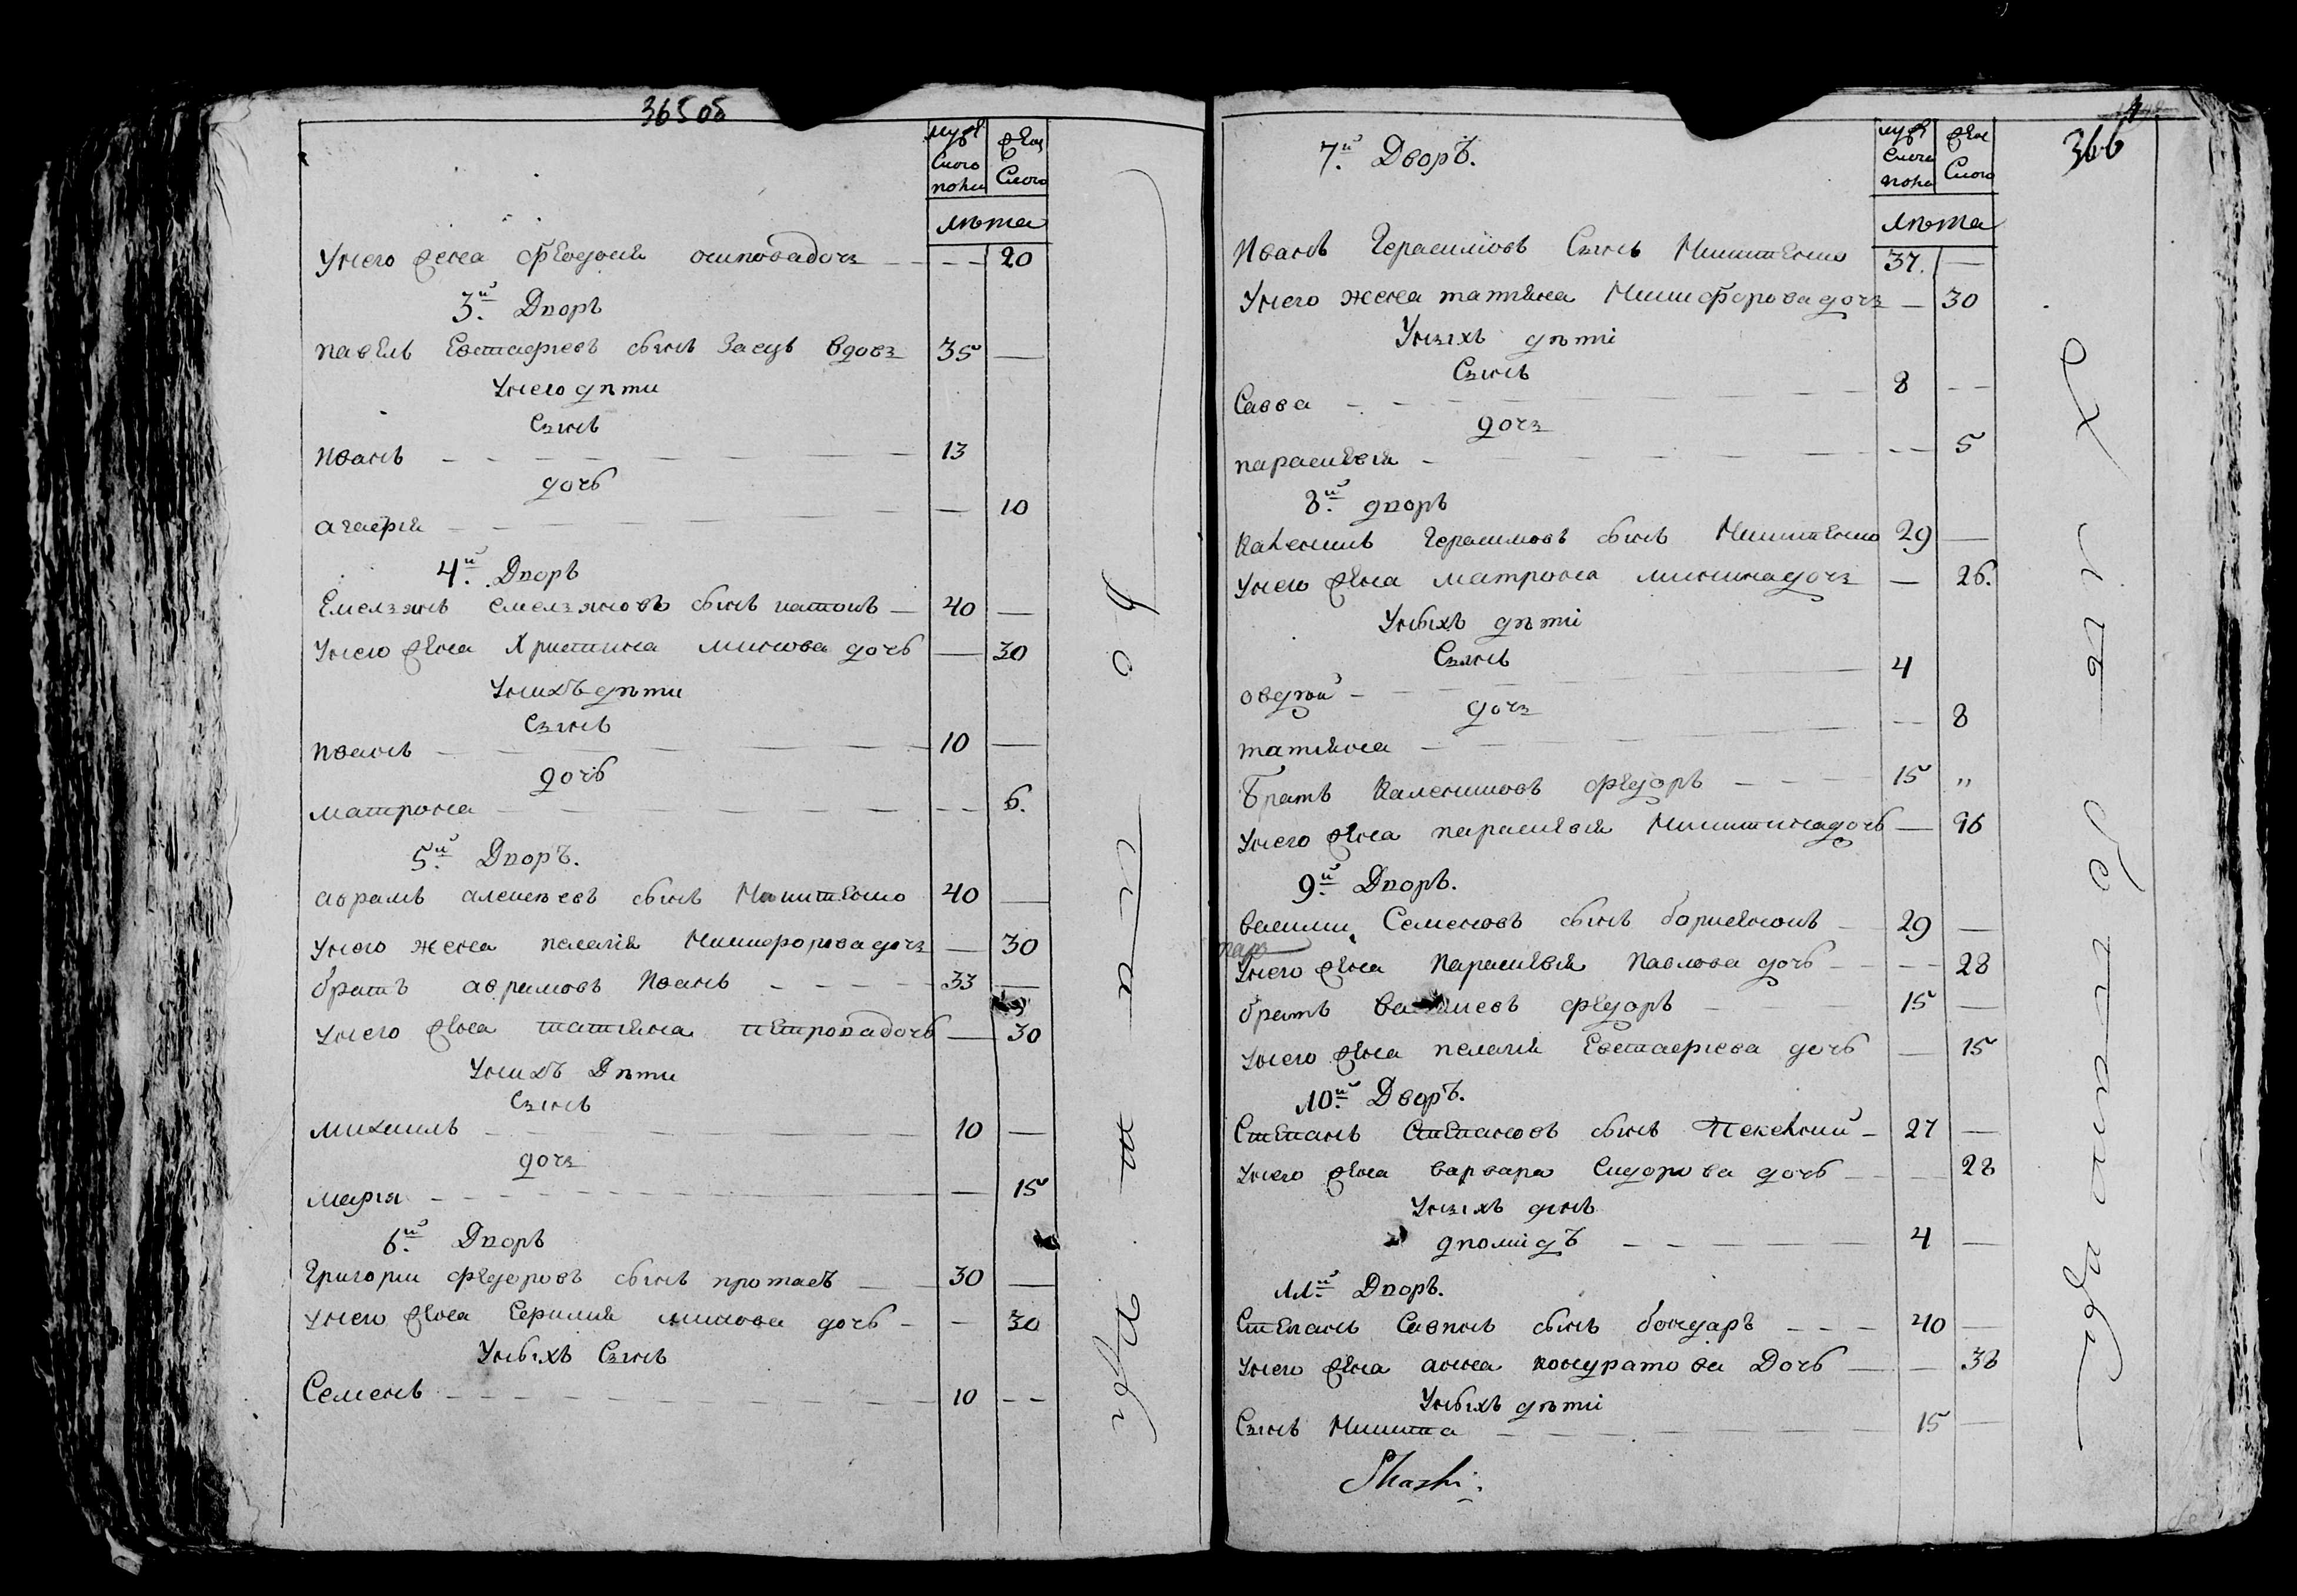 365об
мужескаго полу
женскаго
лѣта
Унего жена Федосия осиповадочъ 20
3.й Дворъ
павелъ Евстафиевъ сынъ Заецъ вдовъ 35
Унего дѣти
Сынъ
иванъ 13
дочь
агафия 10
4.й Дворъ
Емельянъ емельяновъ сынъ 40
Унего жена Христина минова дочь 30
Унихъ дѣти
Сынъ
иванъ 10
дочь
матрона 6.
5.й Дворъ.
аврамъ алексѣевъ сынъ Никитенко 40
Унего жена пелагия Никифорова дочъ 30
братъ аврамовъ иванъ 33
Унего жена татияна петровадочь 30
Унихъ Дѣти
Сынъ
михаилъ 10
дочъ
марѳя 15
6.й Дворъ
Григории Федоровъ сынъ протасъ 30
Унего жена минова дочь 30
Уныхъ Сынъ
Семенъ 10
366
7.й Дворъ.
мужеска полу
женскаго
лѣта
Иванъ Герасимовъ Сынъ Никитенко 37.
Унего жена татияна Никифорова дочъ 30
Уныхъ дѣти
Сынъ
Савва 8
дочъ
параскѣвия 5
8.й дворъ
каленикъ Герасимовъ сынъ Никитенко 29
Унего жена матрона минина дочъ 26.
Уныхъ дѣти
Сынъ
овдѣй 4
дочъ
татияна 8
братъ Калениковъ Федоръ 15 "
Унего жена параскѣвия Никитинадочь 96
9.й Дворъ.
василии Семеновъ сынъ 29
Унего жена Параскѣвия Павлова дочь 28
братъ Федоръ 15
Унего жена пелагия Евстафиева дочь 15
10.й Дворъ.
Степанъ Степановъ сынъ 27
Унего жена варвара Сидорова дочь 28
Уныхъ сынъ
4
11.й Дворъ.
Степанъ Савинъ сынъ бондаръ 40
Унего жена анна кондратова Дочь 38
Уныхъ дѣти
Сынъ Никита 15